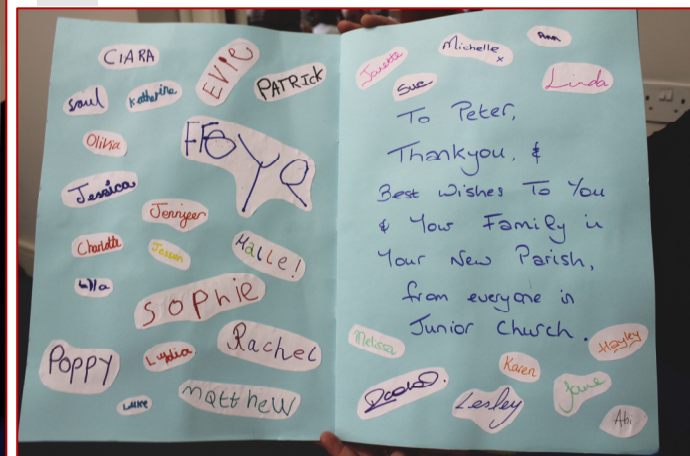 CIARA
EVIE
PATRICK
Saul
Katherine
Olivia
Jessica
Jennifer
Charlotte
Halle!
Ella
SOPHIE
Rachel
POPPY
Lydia
LUKE
matthew
Janette
Michelle
x
Ann
Sue
Linda
To Peter,
Thankyou, &
Best Wishes To You
& Your Family in
Your New Parish,
from everyone in
Junior Church.
Melissa
Hayley
Karen
Lesley
Jane
Abi